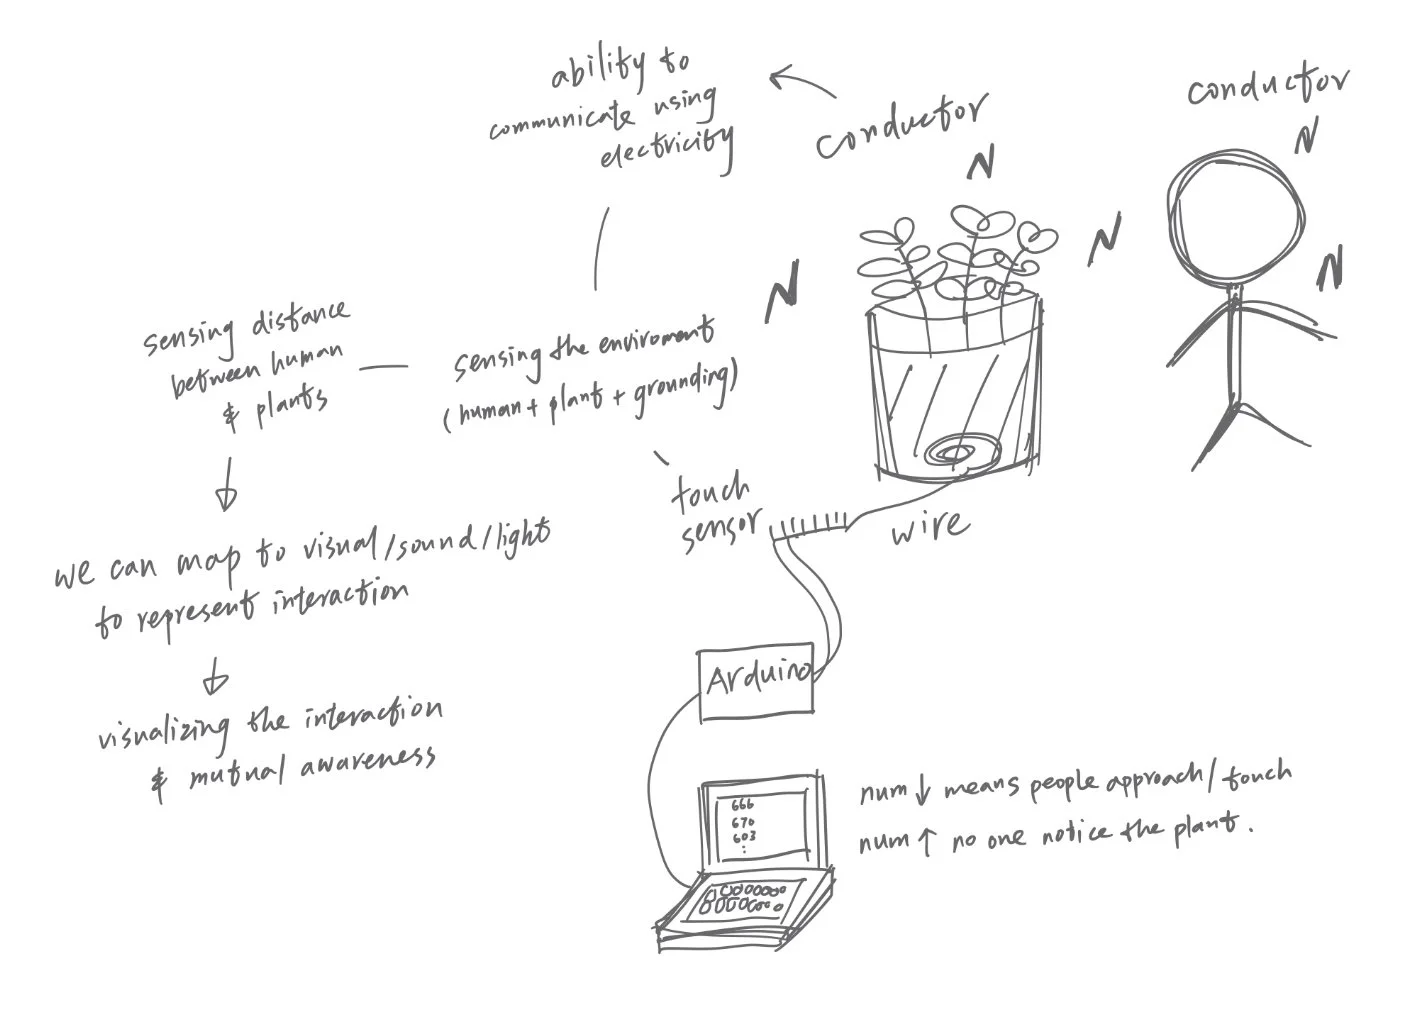 ability to
communicate using
electricity
conductor
conductor
sensing distance
between human
& plants
sensing the enviroment
(human + plant + grounding)
touch
sensor
wire
we can map to visual/sound/light
to represent interaction
Arduino
visualizing the interaction
& mutual awareness
666
670
603
:
num ↓ means people approach/touch
num ↑ no one notice the plant.